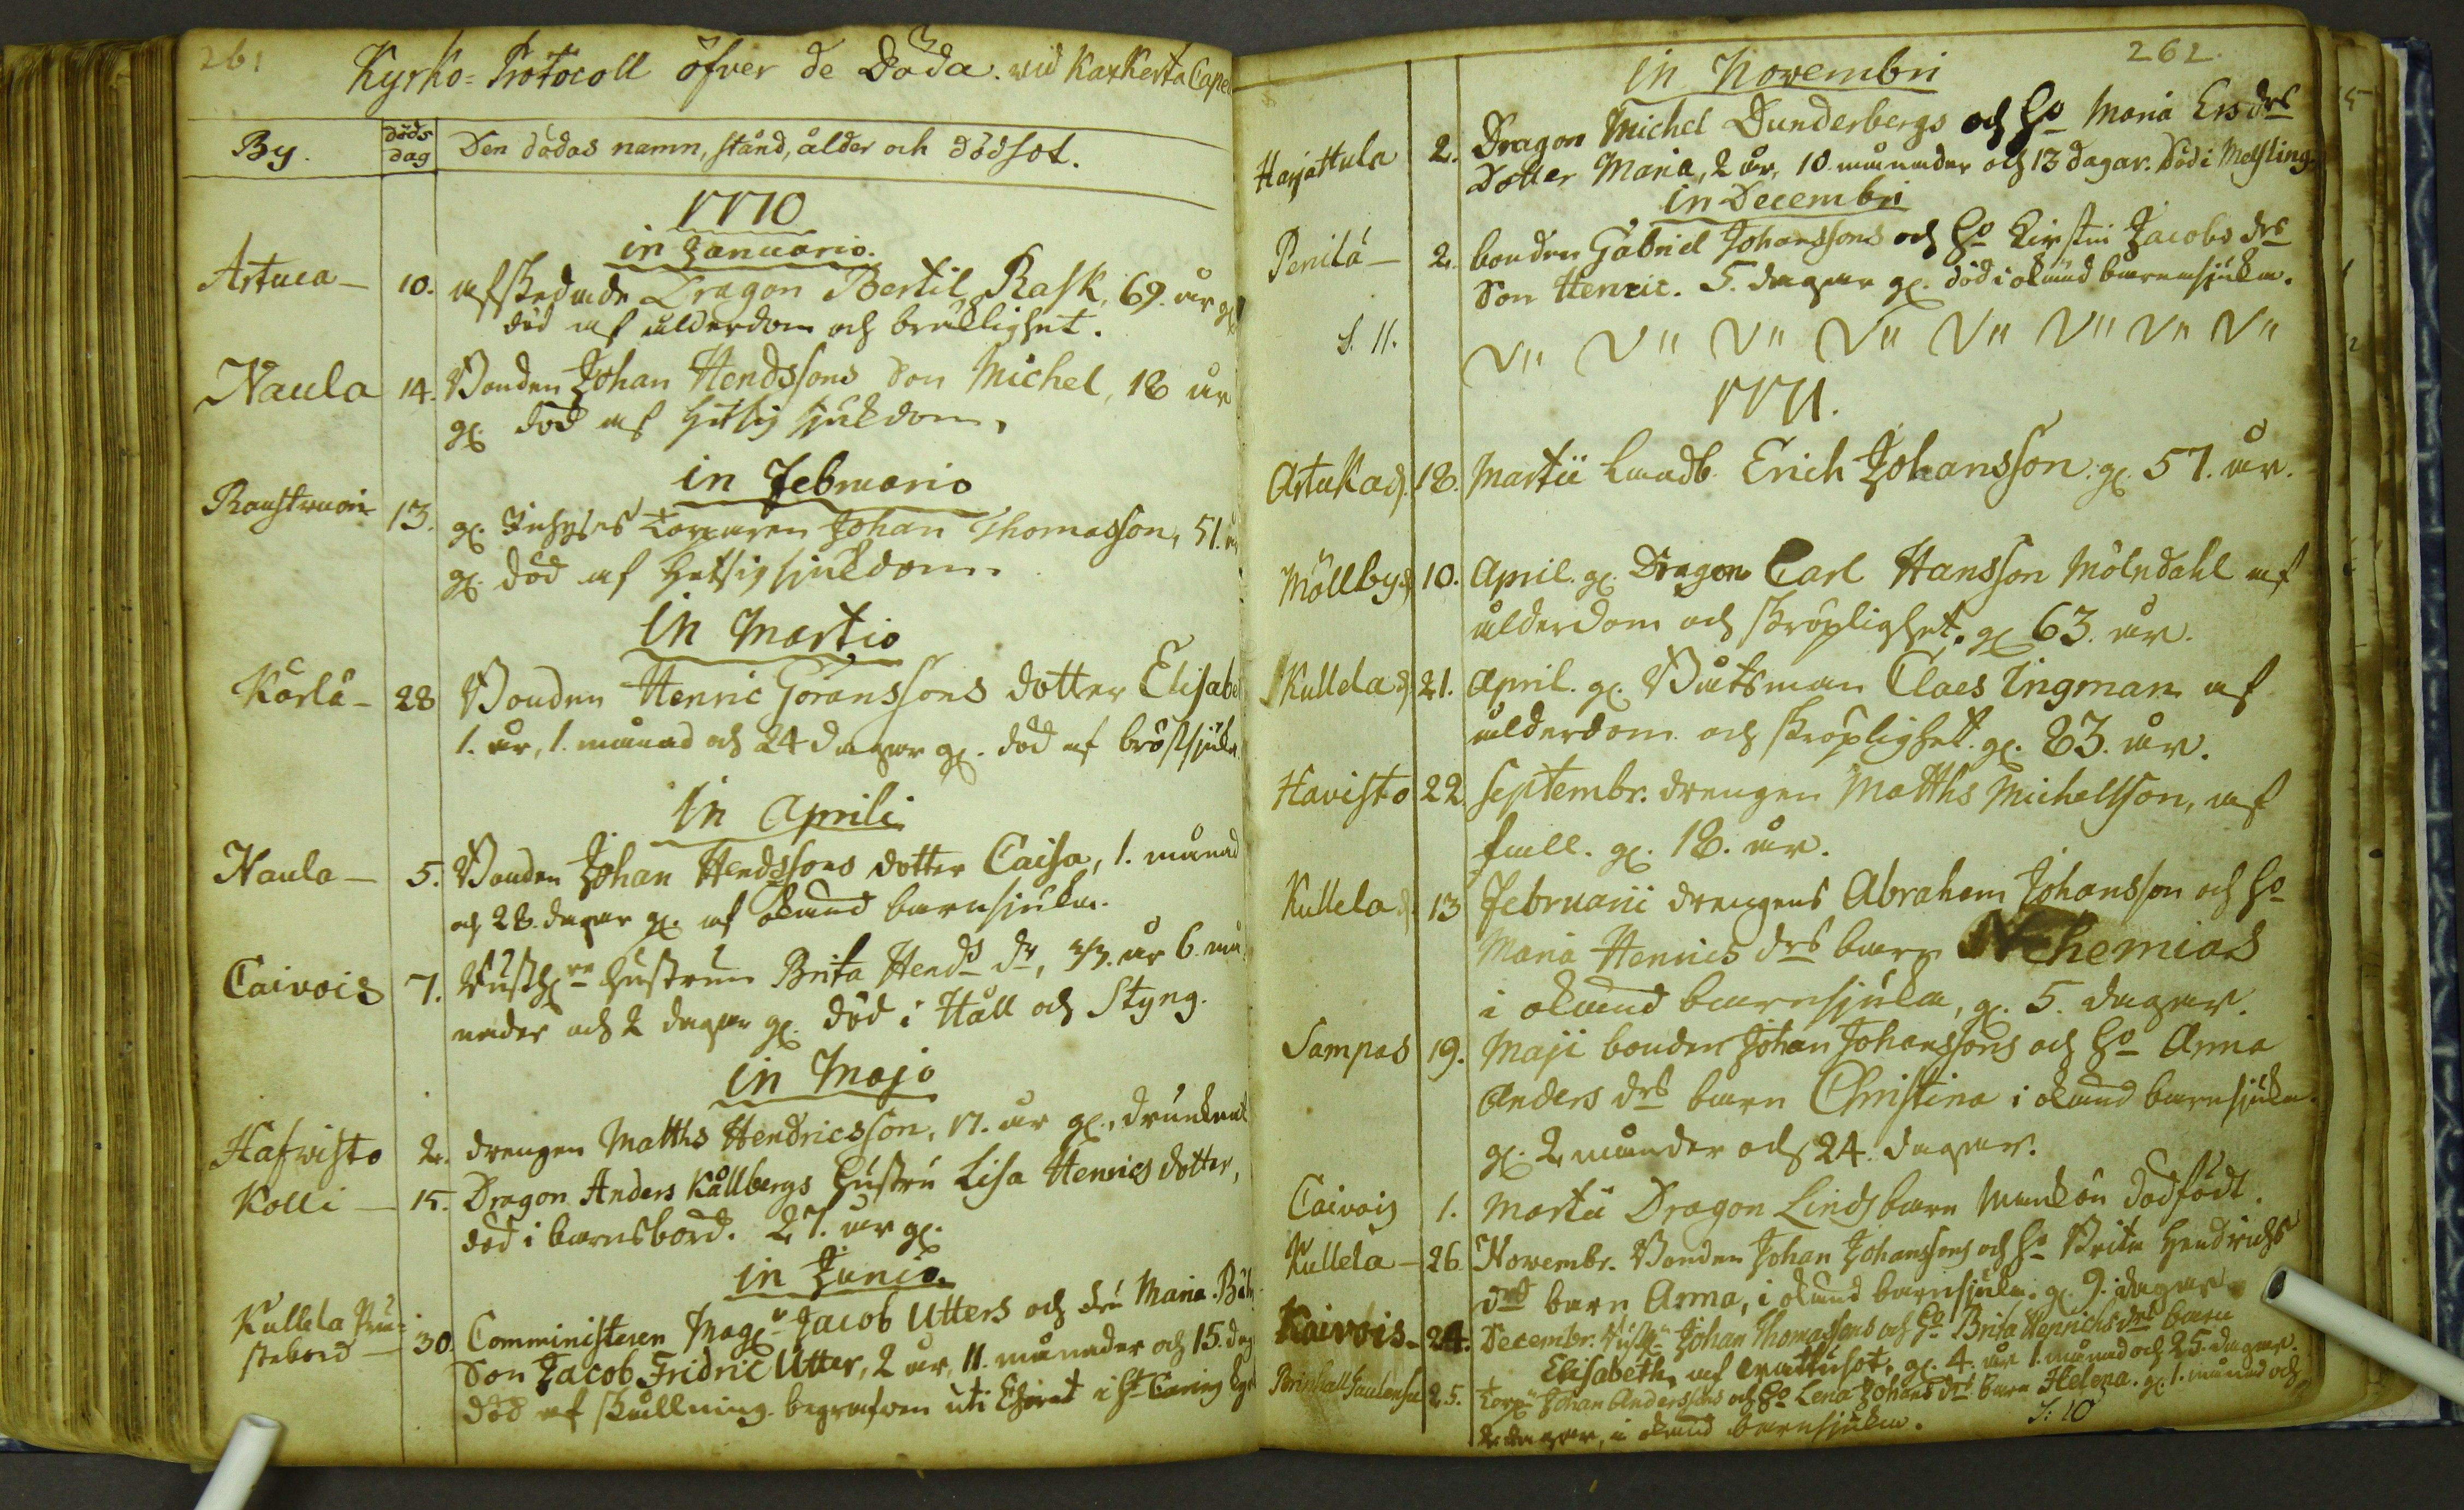 261
Kyrko-Protocoll öfver de Döda. vid Kaxkerta Capel
By.
döds dag
Den dödas namn, stånd, ålder och dödsot.
1770
in Januario.
Artuca — 10. afskedade Dragon Bertil Rask, 69. år gl.
död af ålderdom och bräklighet.
Naula 14. Bonden Johan Hendssons Son Michel, 18 år
gl. död af hetsig sjukdom,
in Februario
13. gl. Inhyses Torparen Johan Thomasson, 51. år
gl. död af hetsig sjukdom.
in Martio
Kärlä — 28 Bonden Henric Göranssons dotter Elisabe
1. år, 1. månad och 24 dagar gl. död af bröstsjuka
in Aprili
Naula — 5. Bonden Johan Hendssons dotter Caisa, 1. månad
och 28. dagar gl. af okänd barnsjuka.
Caivois 7. hustrun Brita Hends dr, 37. år 6. må
nader och 2 dagar gl. död i Håll och Styng.
in Majo
Hafvisto 2. drengen Matths Hendricsson, 17. år gl., drunknat
Kolli — 15. Dragon Anders Kållbergs hustru Lisa Henrics dotter,
död i barnsbörd. 27. år gl.
in Junio
Kullela Prä=
stebord — 30. Comministeren Magr Jacob Utters och fru Maria
Son Jacob Fridric Utter, 2 år, 11. månader och 15. dag
död af skållning. begrafven uti Choret i St Carins
262.
in Novembri
Harjattula 2. Dragon Michel Dunderbergs och ho Maria Ersdrs
Dotter Maria, 2 år, 10. månader och 13 dagar. död i Messling
in Decembri
Penilä — 2. bonden Gabriel Johanssons och ho Kirstin Jacobs drs
Son Henric. 5. dagar gl. död i okänd barnsjuka.
S. 11.
1771.
Artuka 18. Martii Landb. Erich Johansson. gl. 57. år.
Möllby 10. April. gl. Dragon Carl Hansson Mölndahl af
ålderdom och skröplighet, gl 63. år.
Kullela 21. April. gl. Båtsman Claes Ingman af
ålderdom och skröplighet. gl. 83. år.
Havisto 22 Septembr. drengen Matths Michellson, af
fall. gl. 18. år.
Kullela 13 Februarii drengens Abraham Johansson och ho
Maria Henrics drs barn Nehemias
i okänd barnsjuka, gl. 5. dagar.
Sampas 19. Maji bonden Johan Johanssons och ho Anna
Anders drs barn Christina i okänd barnsjuka.
gl. 2 månder och 24. dagar.
Caivois 1. Martii Dragon Linds barn mankön dödfödt.
Kullela — 26 Novembr. Bonden Johan Johanssons och ho Brita Hendrichs
drs barn Anna, i okänd barnsjuka. gl. 9. dagar.
Kaivois — 24. Decembr. Johan Thomassons och ho Brita Henrichs drs barn
Elisabeth, af gl. 4. år 1. månad och 25. dagar.
25. Torpn Johan Anderssons och ho Lena Johans drs barn Helena. gl. 1. månad och
2 dagar, i okänd barnsjuka.
S: 10